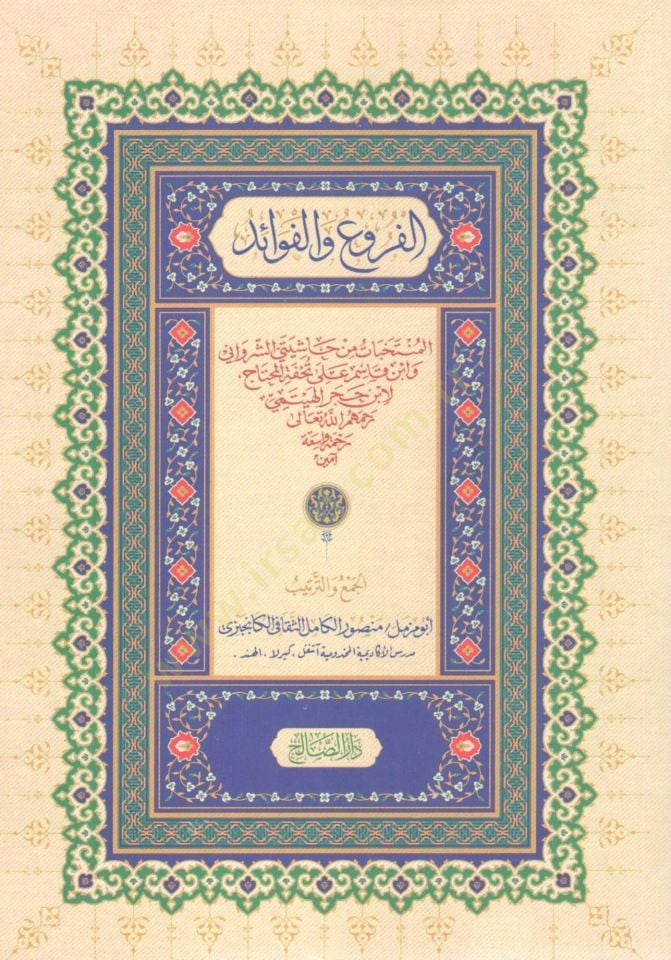 الفُرُوعُ وَالفَوَائِدُ
المُنْتَخَبَاتُ مِنْ حَاشِيَتَيِ الشَّرْوَانِي
وَابْنِ قَاسِمٍ عَلَى تُحْفَةِ المُحْتَاجِ
لِابْنِ حَجَرٍ الهَيْتَمِيِّ
رَحِمَهُمُ اللّٰهُ تَعَالَى
رَحْمَةً وَاسِعَةً
آمِين
الجَمْعُ وَالتَّرْتِيبُ
أبو مزمل / منصور الكامل الثقافي الكانجيزي
مدرس الأكاديمية المخدومية آتنغل ، كيرلا ، الهند .
دَارُ الصَّالِح